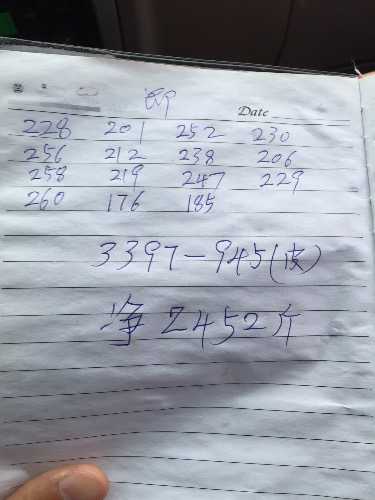 Date
228 201 252 230
256 212 238 206
258 219 247 229
260 176 185
3397-945(皮)
净 2452斤